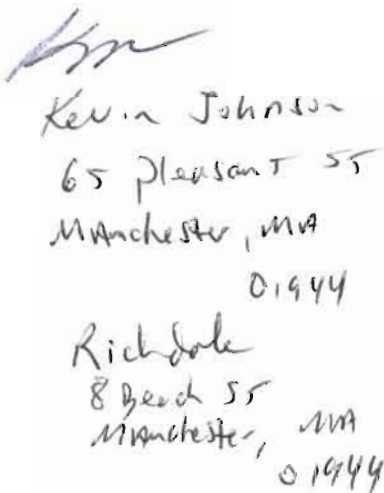 Kevin Johnson
65 Pleasant ST
Manchester, MA
01944
Richdale
8 Beach ST
Manchester, MA
01944